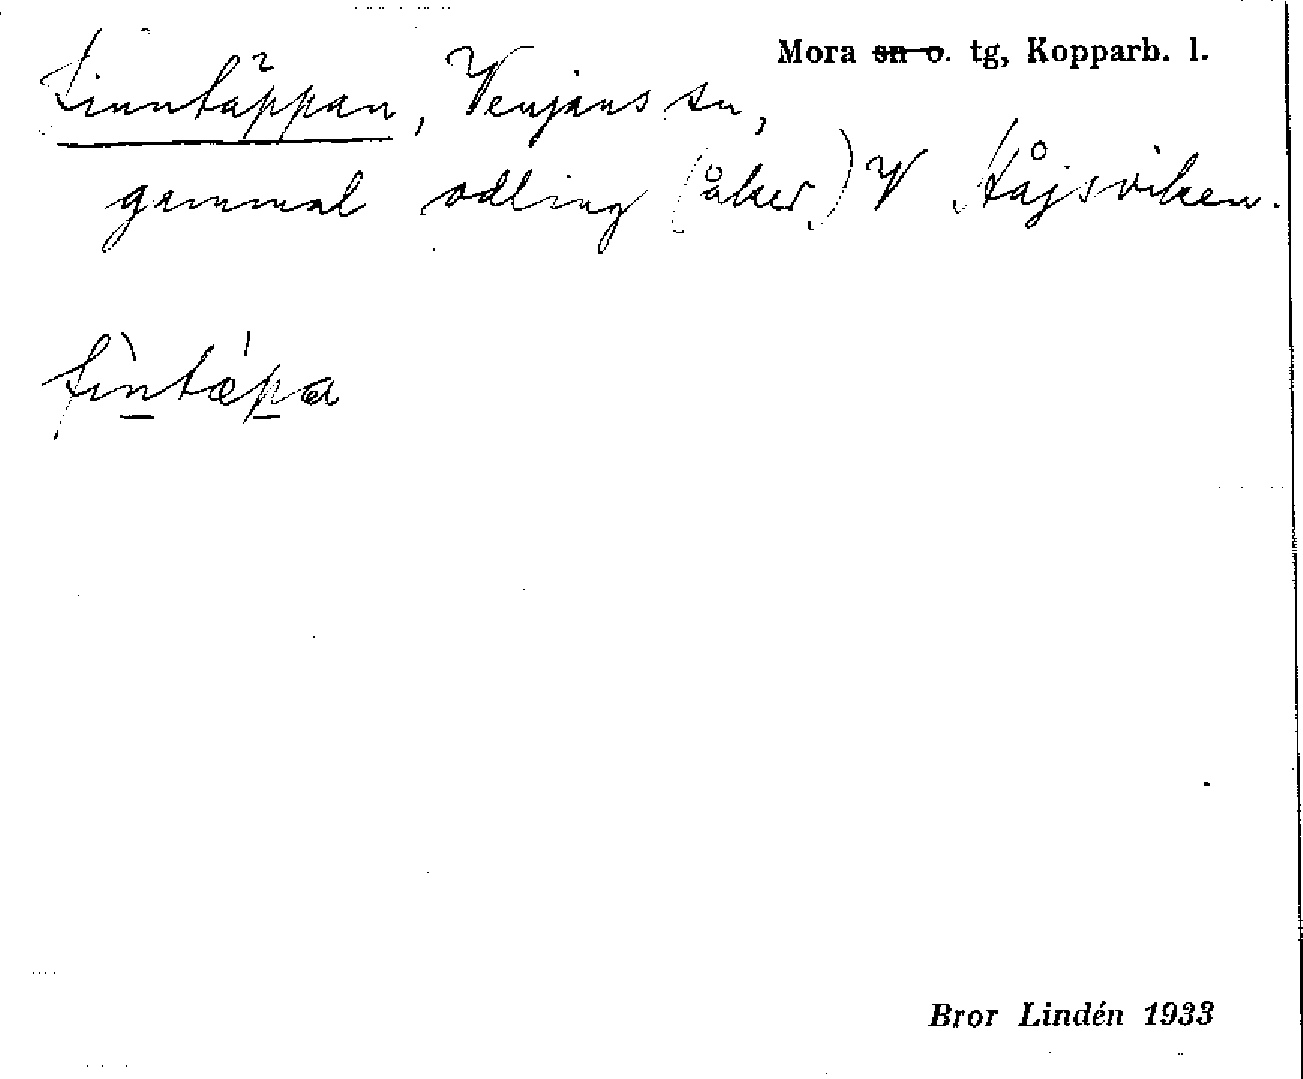 Mora sn o. tg, Kopparb. l.
Finntäppan, Venjans sn,
gammal odling (åker) V Håjsviken.
fìntǽpa
Bror Lindén 1933